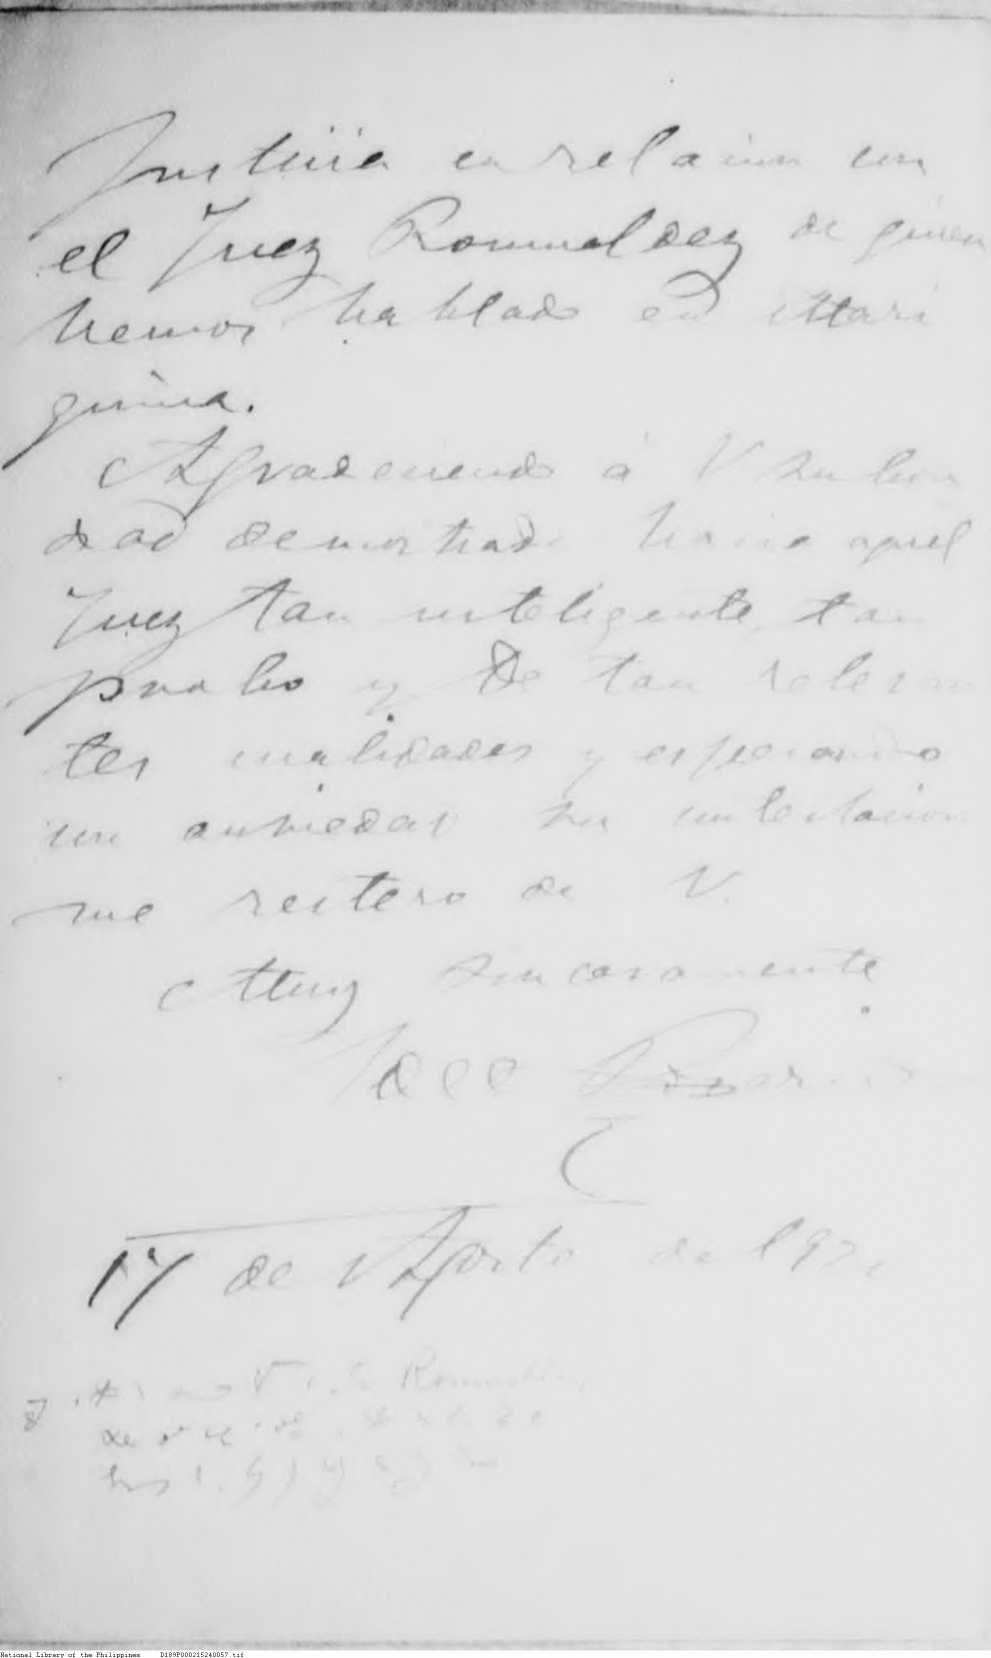 Justicia en relacion con
el Juez Romualdez de quien
hemos hablado en Mari
quina.
Agradeciendo á V su bon
dad demostrada hacia aquel
Juez tan inteligente, tan
probo y de tan relevan
tes cualidades y esperando
con ansiedad su contestacion
me reitero de V.
Muy sinceramente
17 de Agosto de
Romualdez
National Library of the Philippines D189P000215240057.tif